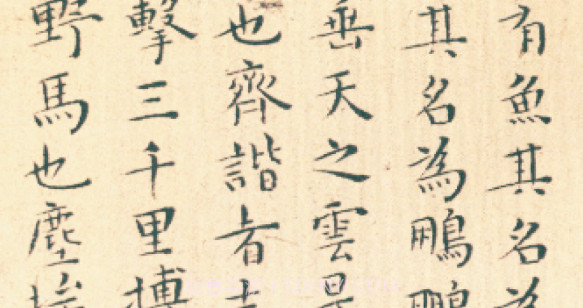 有魚其名為
其名為鵬鵬
垂天之雲是
也齊諧者志
擊三千里摶
野馬也塵埃